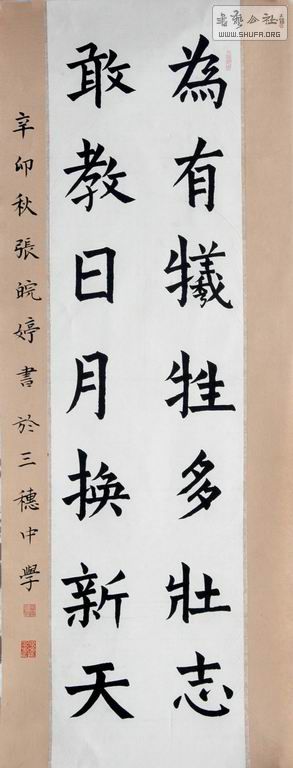 為有犧牲多壯志
敢教日月換新天
辛卯秋張皖婷書於三穗中學
書藝公社
WWW.SHUFA.ORG